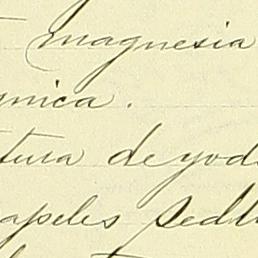 magnesia
mica.
tura de yod
apeles Sedl